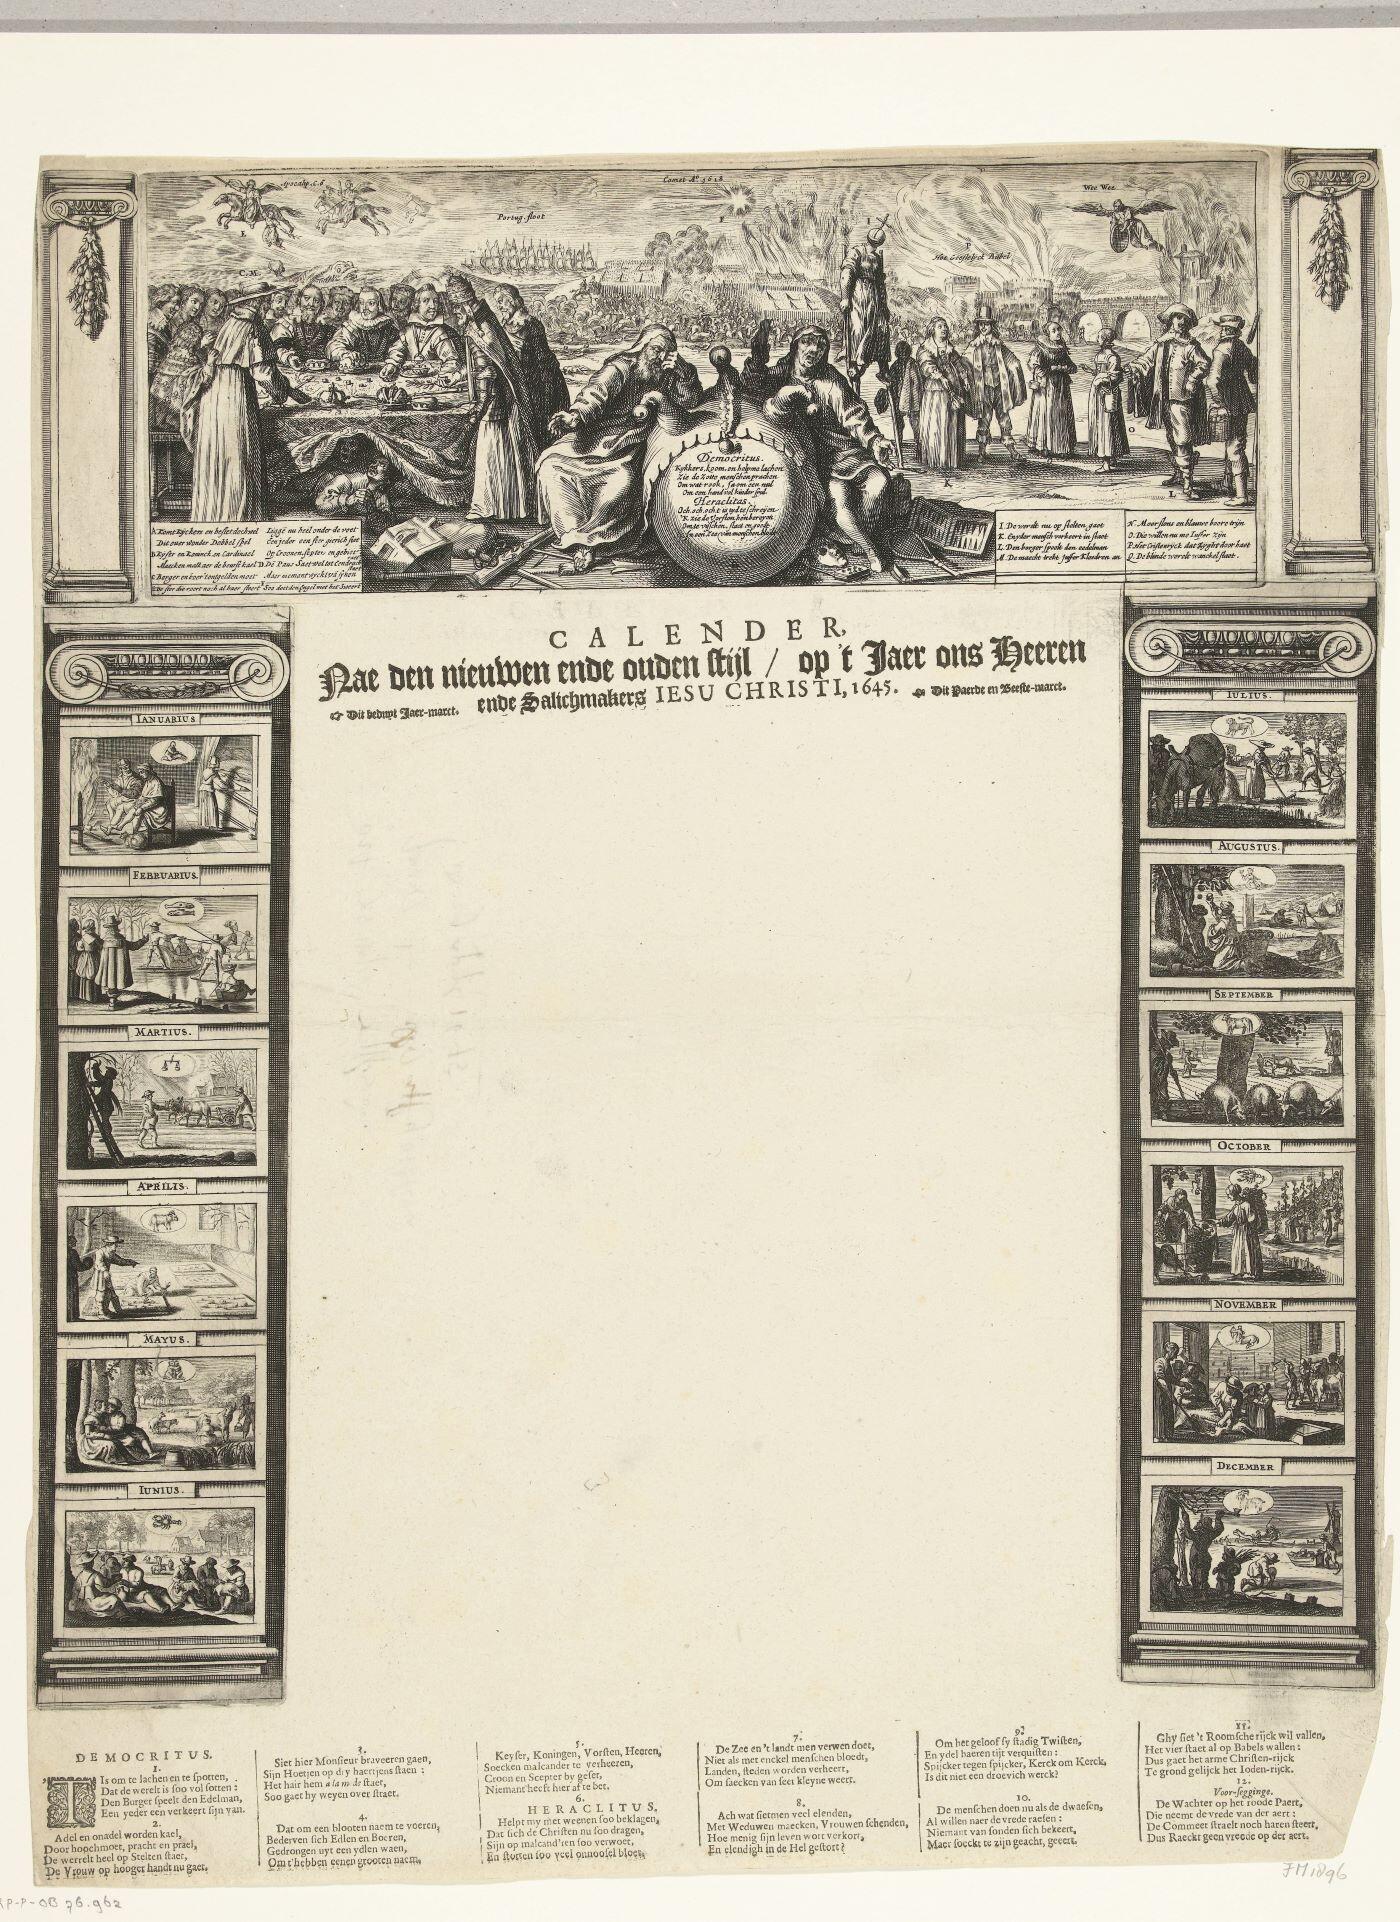 Apocalip. C. 6
Comet Ao. 1618
Portug. floot
Wee Wee
E
F
I
P
C. M.
K
L
O
Het Geestelyck Babel
Democritus.
Kykkers, koom, en help me lachen
Zie de Zotte menschen prachen
Om wat rook,
Om een hand vol kinder spul.
Heraclitus.
Och, och, och t is tyd te schreijen
I. De werelt nu op stelten gaet
K. En yder mensch verkeert in staet
L. Den borger speelt den eedelman
M. De maecht trekt Juffer Kleedren an
O. Die willen nu me Juffer zijn
P. Het Cristenryck dat
Q. De blinde werelt wanckel staet.
CALENDER,
Nae den nieuwen ende ouden stijl / op 't Jaer ons Heeren
ende Salichmakers IESU CHRISTI, 1645.
☞ Dit beduyt Jaer-marct.
Dit Paerde en Beeste-marct.
IANUARIUS
FEBRUARIUS.
MARTIUS.
APRILIS.
MAYUS.
IUNIUS.
IULIUS.
AUGUSTUS.
SEPTEMBER
OCTOBER
NOVEMBER
DECEMBER
DEMOCRITUS.
1.
IS om te lachen en te spotten,
Dat de werelt is soo vol sotten:
Den Burger speelt den Edelman,
Een yeder een verkeert sijn van.
2.
Adel en onadel worden kael,
Door hoochmoet, pracht en prael,
De werrelt heel op Stelten staet,
De Vrouw op hooger handt nu gaet.
3.
Siet hier Monsieur braveeren gaen,
Sijn Hoetjen op dry haertjens staen:
Het hair hem a la mode staet,
Soo gaet hy weyen over straet.
4.
Dat om een blooten naem te voeren,
Bederven sich Edlen en Boeren,
Gedrongen uyt een ydlen waen,
Om t'hebben eenen grooten naem.
5.
Keyser, Koningen, Vorsten, Heeren,
Soecken malcander te verheeren,
Croon en Scepter by geset,
Niemant heeft hier af te bet.
6.
HERACLITUS.
Helpt my met weenen soo beklagen,
Dat sich de Christen nu soo dragen,
Sijn op malcand'ren soo verwoet,
En storten soo veel onnoosel bloet.
7.
De Zee en 't landt men verwen doet,
Niet als met enckel menschen bloedt,
Landen, steden worden verheert,
Om saecken van seer kleyne weert.
8.
Ach wat sietmen veel elenden,
Met Weduwen maecken, Vrouwen schenden,
Hoe menig sijn leven wort verkort,
En elendigh in de Hel gestort?
9.
Om het geloof sy stadig Twisten,
En ydel haeren tijt verquisten:
Spijcker tegen spijcker, Kerck om Kerck,
Is dit niet een droevich werck?
10.
De menschen doen nu als de dwaesen,
Al willen naer de vrede raesen:
Niemant van sonden sich bekeert,
Maer soeckt te zijn geacht, geeert.
11.
Ghy siet 't Roomsche rijck wil vallen,
Het vier staet al op Babels wallen:
Dus gaet het arme Christen-rijck
Te grond gelijck het Ioden-rijck.
12.
Voor-segginge.
De Wachter op het roode Paert,
Die neemt de vrede van der aert:
De Commeet straelt noch haren steert,
Dus Raeckt geen vreede op der aert.
FM 1896
RP-P-OB 76.962